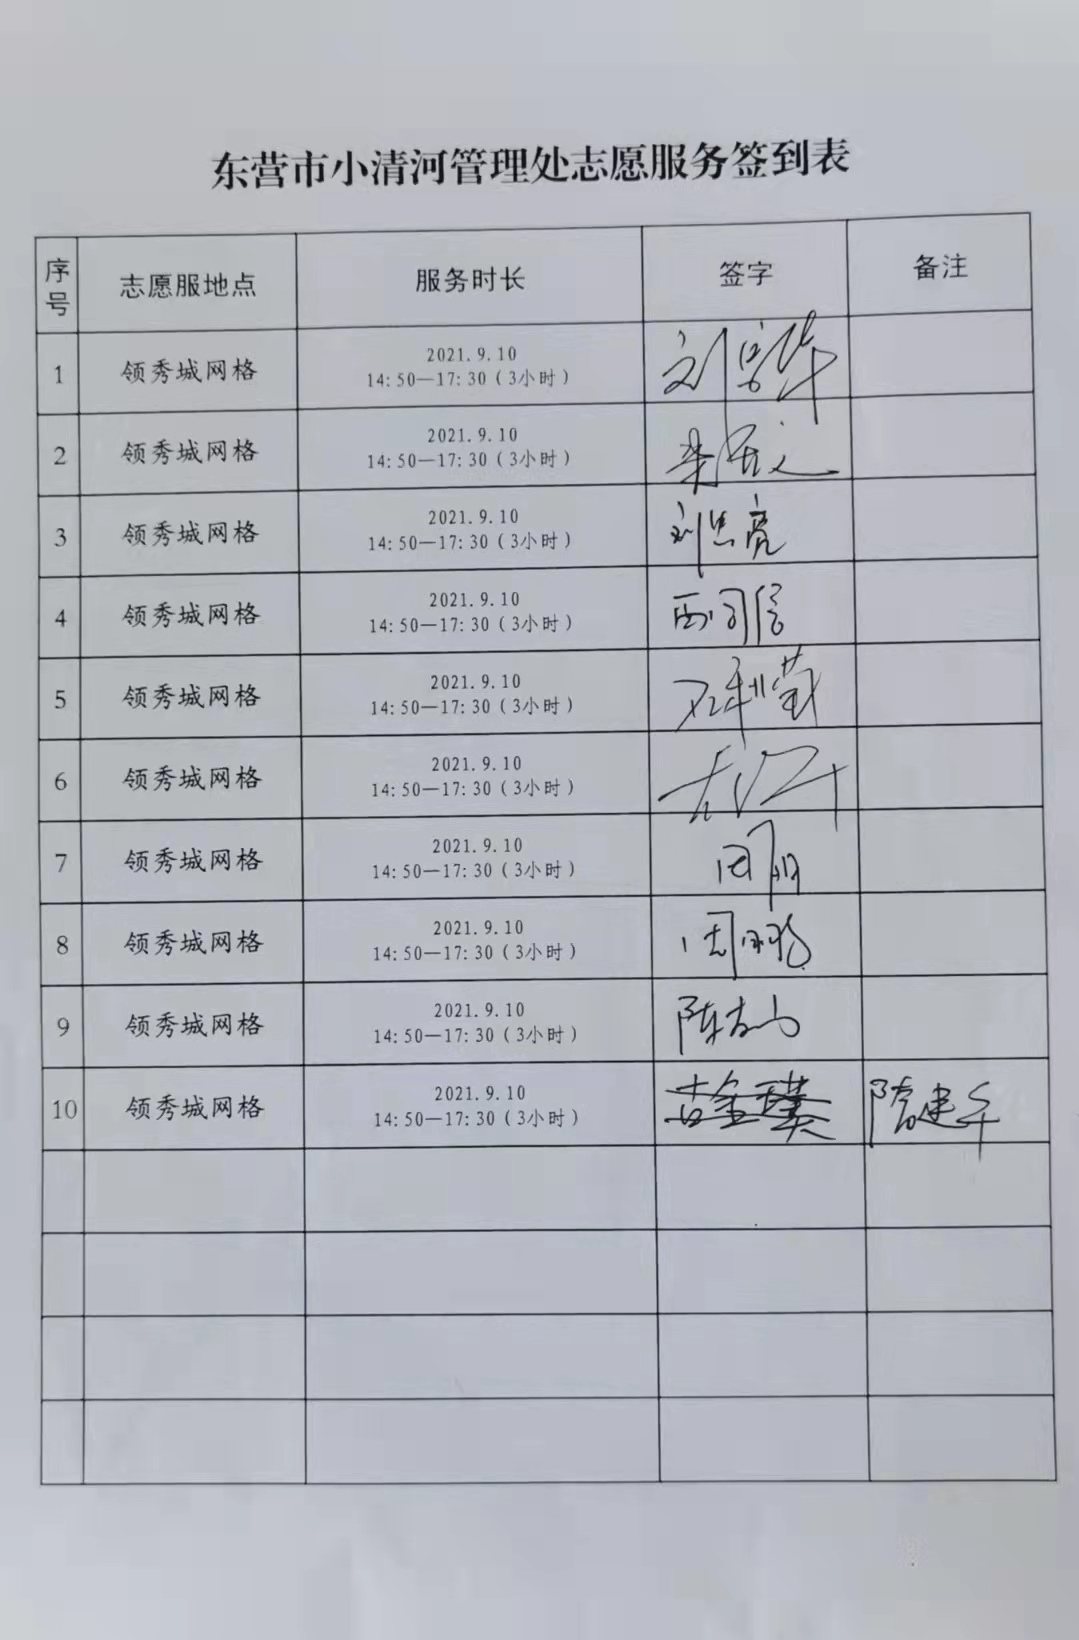 东营市小清河管理处志愿服务签到表
序号 志愿服地点 服务时长 签字 备注
1 领秀城网格 2021.9.10
14:50—17:30（3小时）
2 领秀城网格 2021.9.10
14:50—17:30（3小时）
3 领秀城网格 2021.9.10
14:50—17:30（3小时） 刘思亮
4 领秀城网格 2021.9.10
14:50—17:30（3小时）
5 领秀城网格 2021.9.10
14:50—17:30（3小时）
6 领秀城网格 2021.9.10
14:50—17:30（3小时）
7 领秀城网格 2021.9.10
14:50—17:30（3小时）
8 领秀城网格 2021.9.10
14:50—17:30（3小时） 周鹏
9 领秀城网格 2021.9.10
14:50—17:30（3小时）
10 领秀城网格 2021.9.10
14:50—17:30（3小时） 隋建华